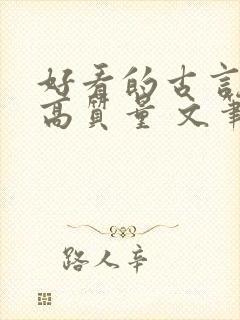 好看的古言
高質量 文筆
路人辛